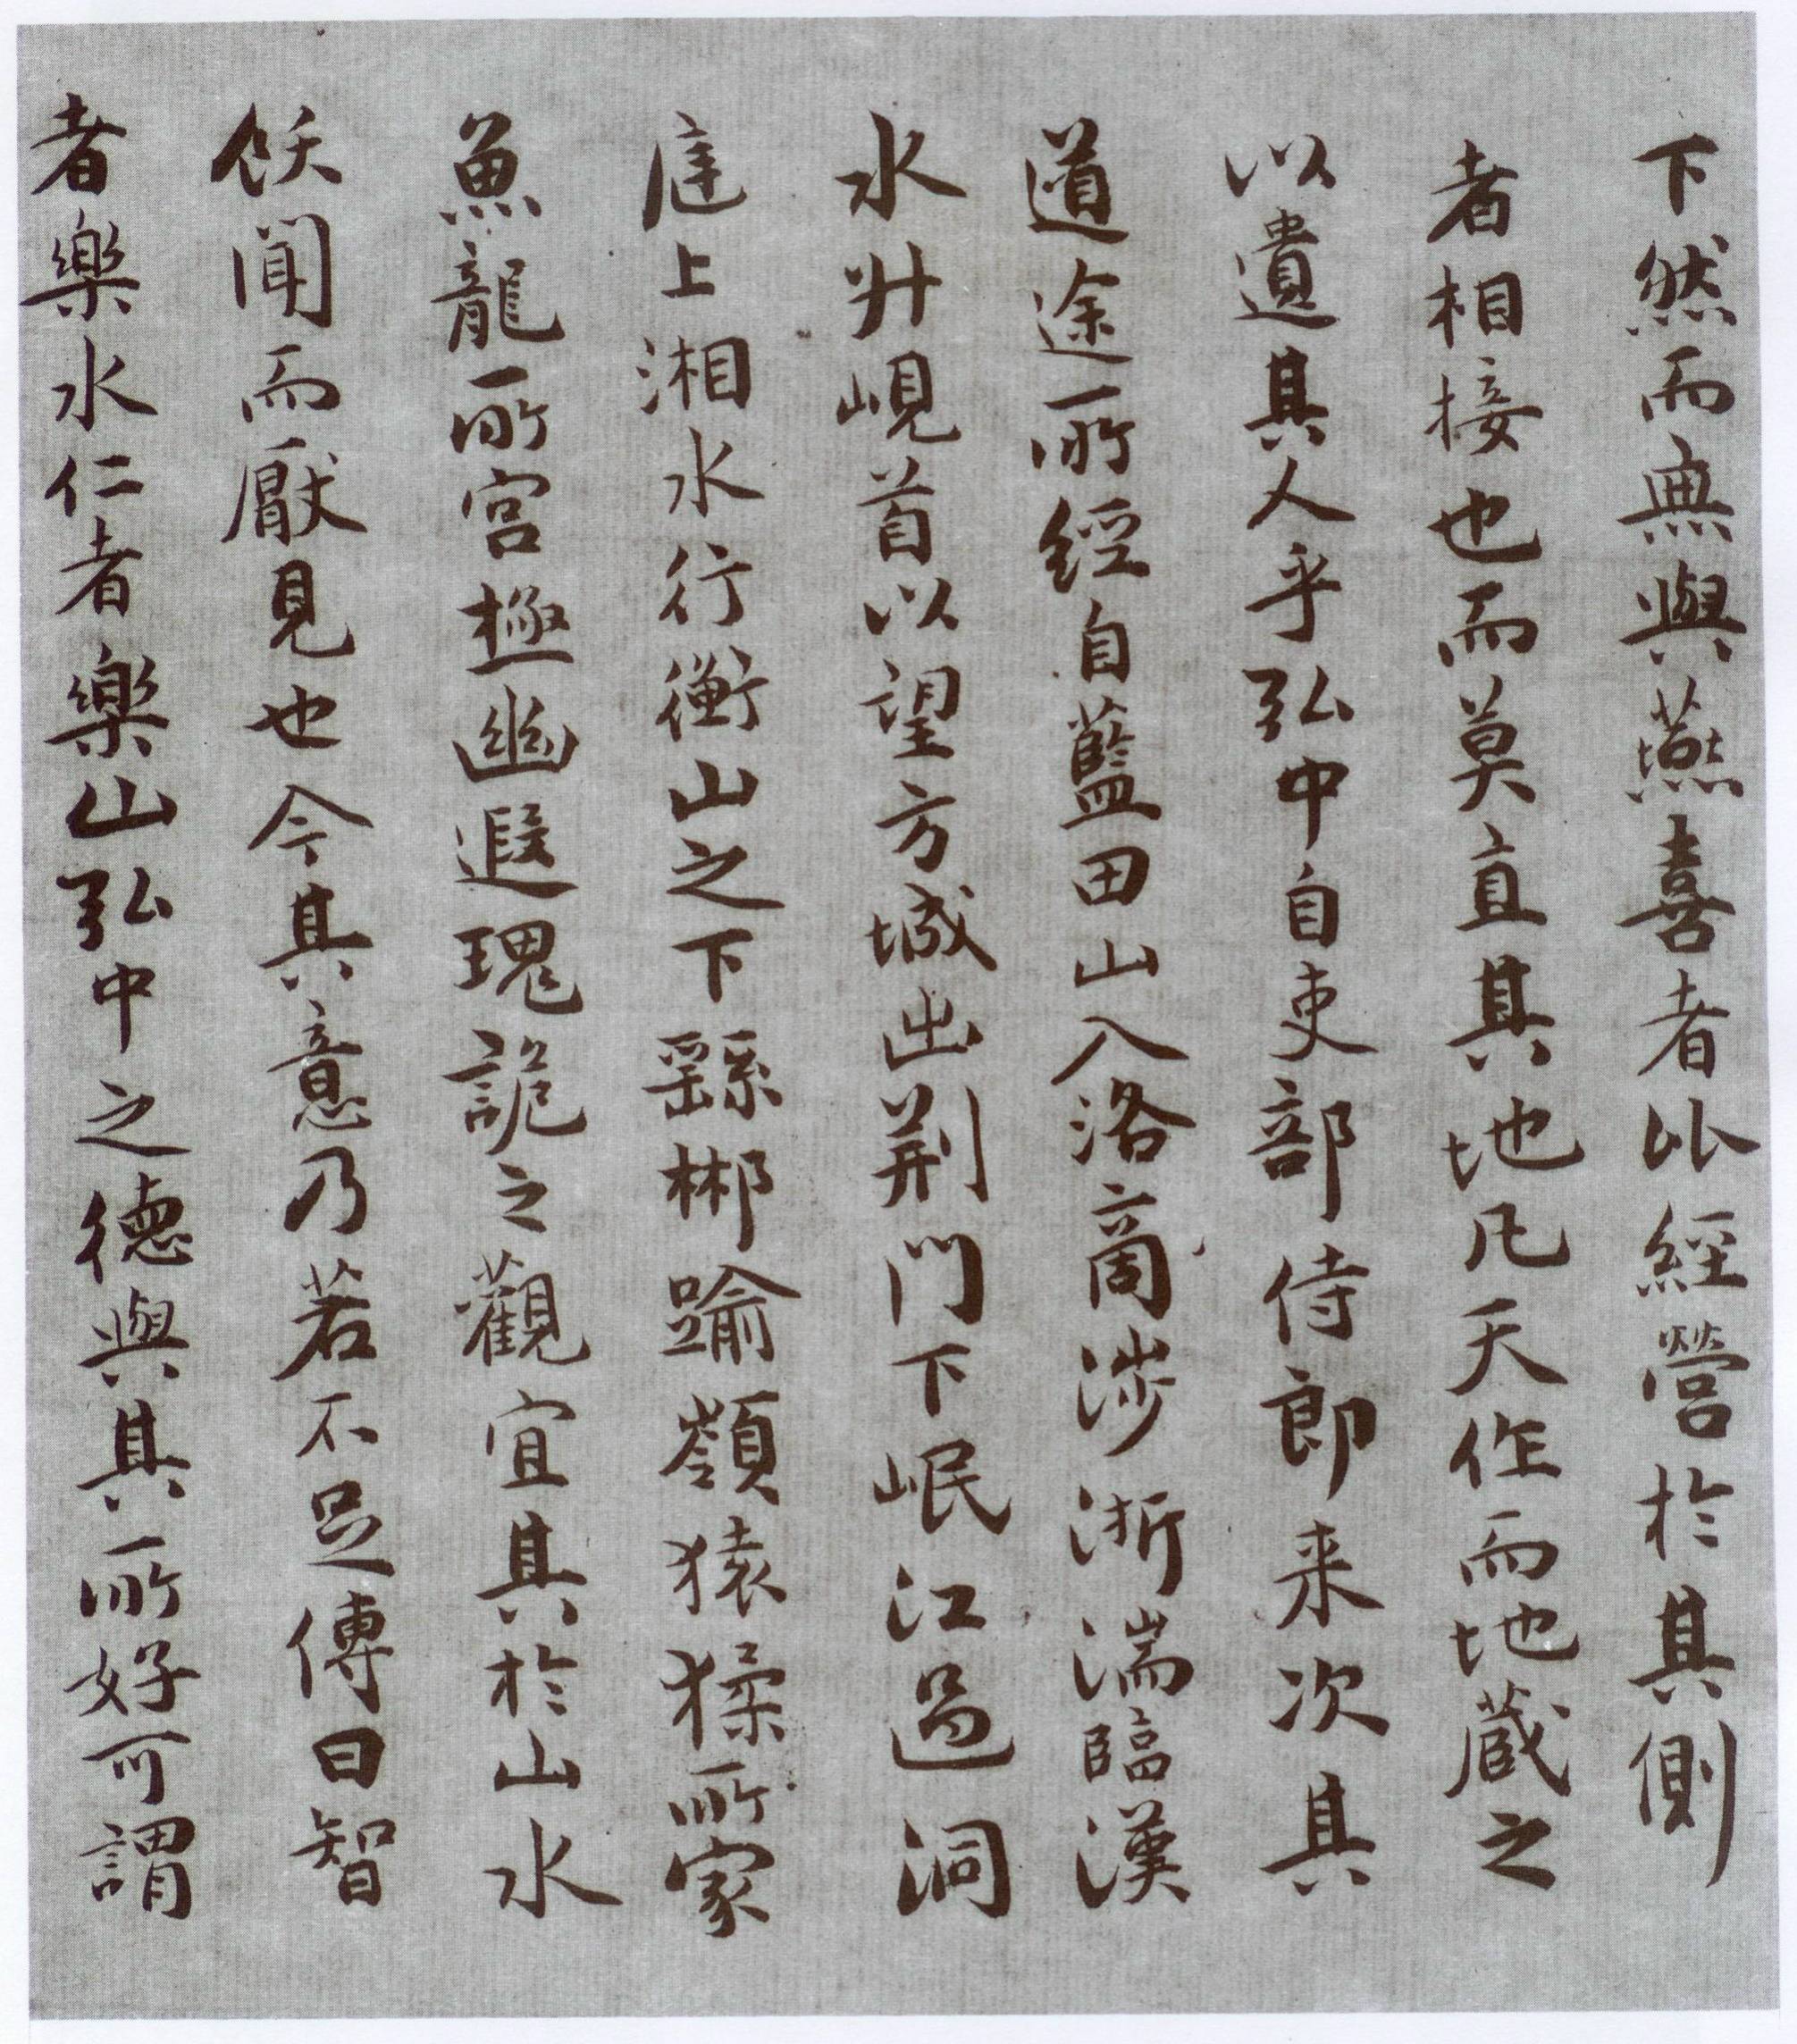 下然而無與燕喜者比經營於其側
者相接也而莫直其地凡天作而地蔵之
以遺其人乎弘中自吏部侍郎来次其
道途所經自藍田山入洛商涉淅湍臨漢
水升峴首以望方城出荆門下岷江過洞
庭上湘水行衡山之下繇郴踰嶺猿猱所家
魚龍所宮極幽遐瑰詭之觀宜其於山水
飫聞而厭見也今其意乃若不足傳曰智
者樂水仁者樂山弘中之德與其所好可謂